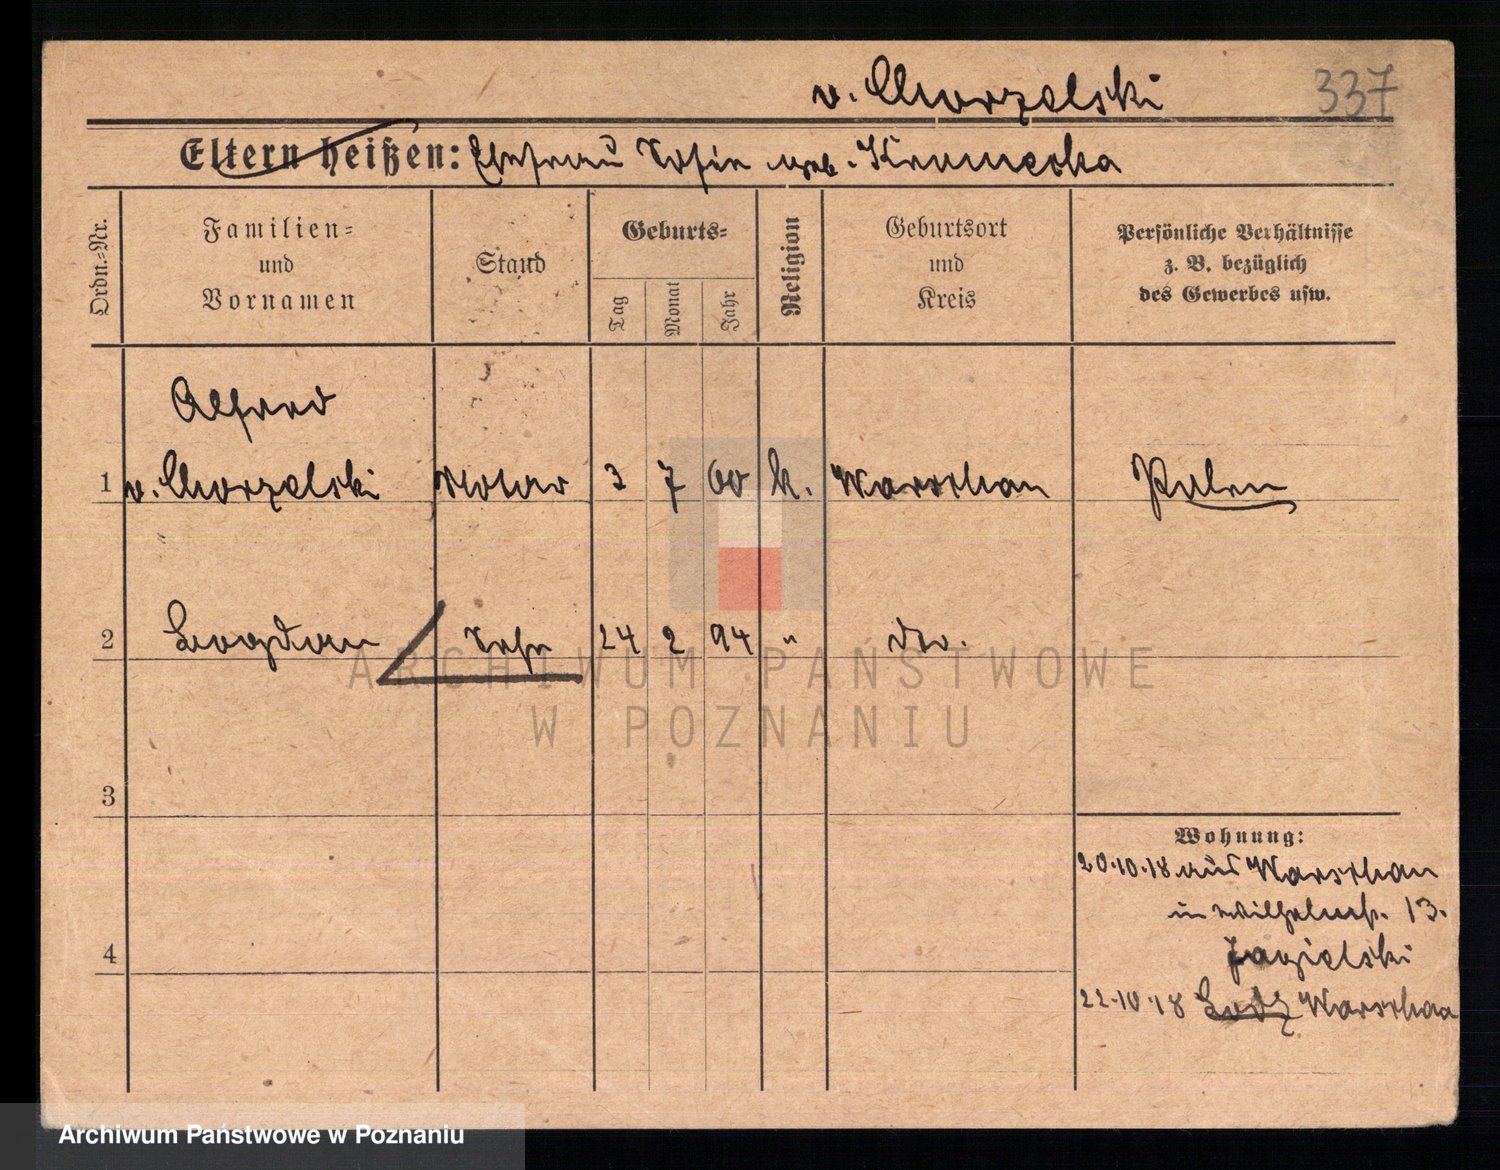 v. Chorzelski
337
Eltern heißen: Ehefrau Sofie geb. Kramecka
Ordn.-Nr.
Familien-
und
Vornamen
Stand
Geburts-
Tag
Monat
Jahr
Religion
Geburtsort
und
Kreis
Persönliche Verhältnisse
z. B. bezüglich
des Gewerbes usw.
Alfred
1 v. Chorzelski Notar 3 7 60 k. Warschau Polen
2 Bogdan Sohn 24 2 94 " do.
3
Wohnung:
20.10.18 aus Warschau
in Wilhelmst. 13.
4
Jagielski
22.10.18 Lodz Warschau
ARCHIWUM PAŃSTWOWE
W POZNANIU
Archiwum Państwowe w Poznaniu